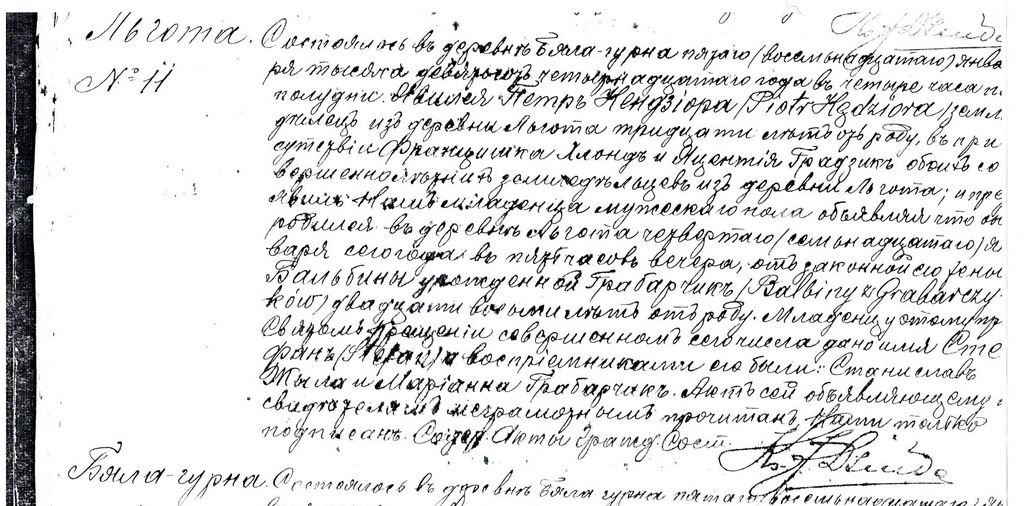 Льгота.
№ 11
Состоялось въ деревнѣ Бяла-гурна пятаго /восемьнадцатаго/ янва
ря тысяча девятьсотъ четырнадцатаго года въ четыре часа по
полудни. Явился Петръ Кендзіора /Piotr Kędziora/ земле
дѣлецъ изъ деревни Льгота тридцати лѣтъ отъ роду, въ при
сутствіи Францишка Хлондъ и Яцентія Градзикъ обоихъ со
вершеннолѣтнихъ земледѣльцевъ изъ деревни Льгота; и пре
явилъ Намъ младенца мужескаго пола объявляя что онъ
родился въ деревнѣ Льгота четвертаго /семьнадцатаго/ я
варя сего года въ пять часовъ вечера, отъ законной его жены
Бальбины урожденной Грабарчикъ /Balbiny z Grabarczy
ków/ двадцати восьми лѣтъ отъ роду. Младенцу этому при
Святомъ Крещеніи совершенномъ сего числа дано имя Сте
фанъ /Stefan/ а воспріемниками его были: Станиславъ
Жыла и Маріанна Грабарчикъ. Актъ сей объявляющему и
свидѣтелямъ неграмотнымъ прочитанъ, Нами только
подписанъ. Содер. Акты Гражд. Сост.
Бяла-гурна. Состоялось въ деревнѣ Бяла гурна пятаго /восемьнадцатаго/ ян